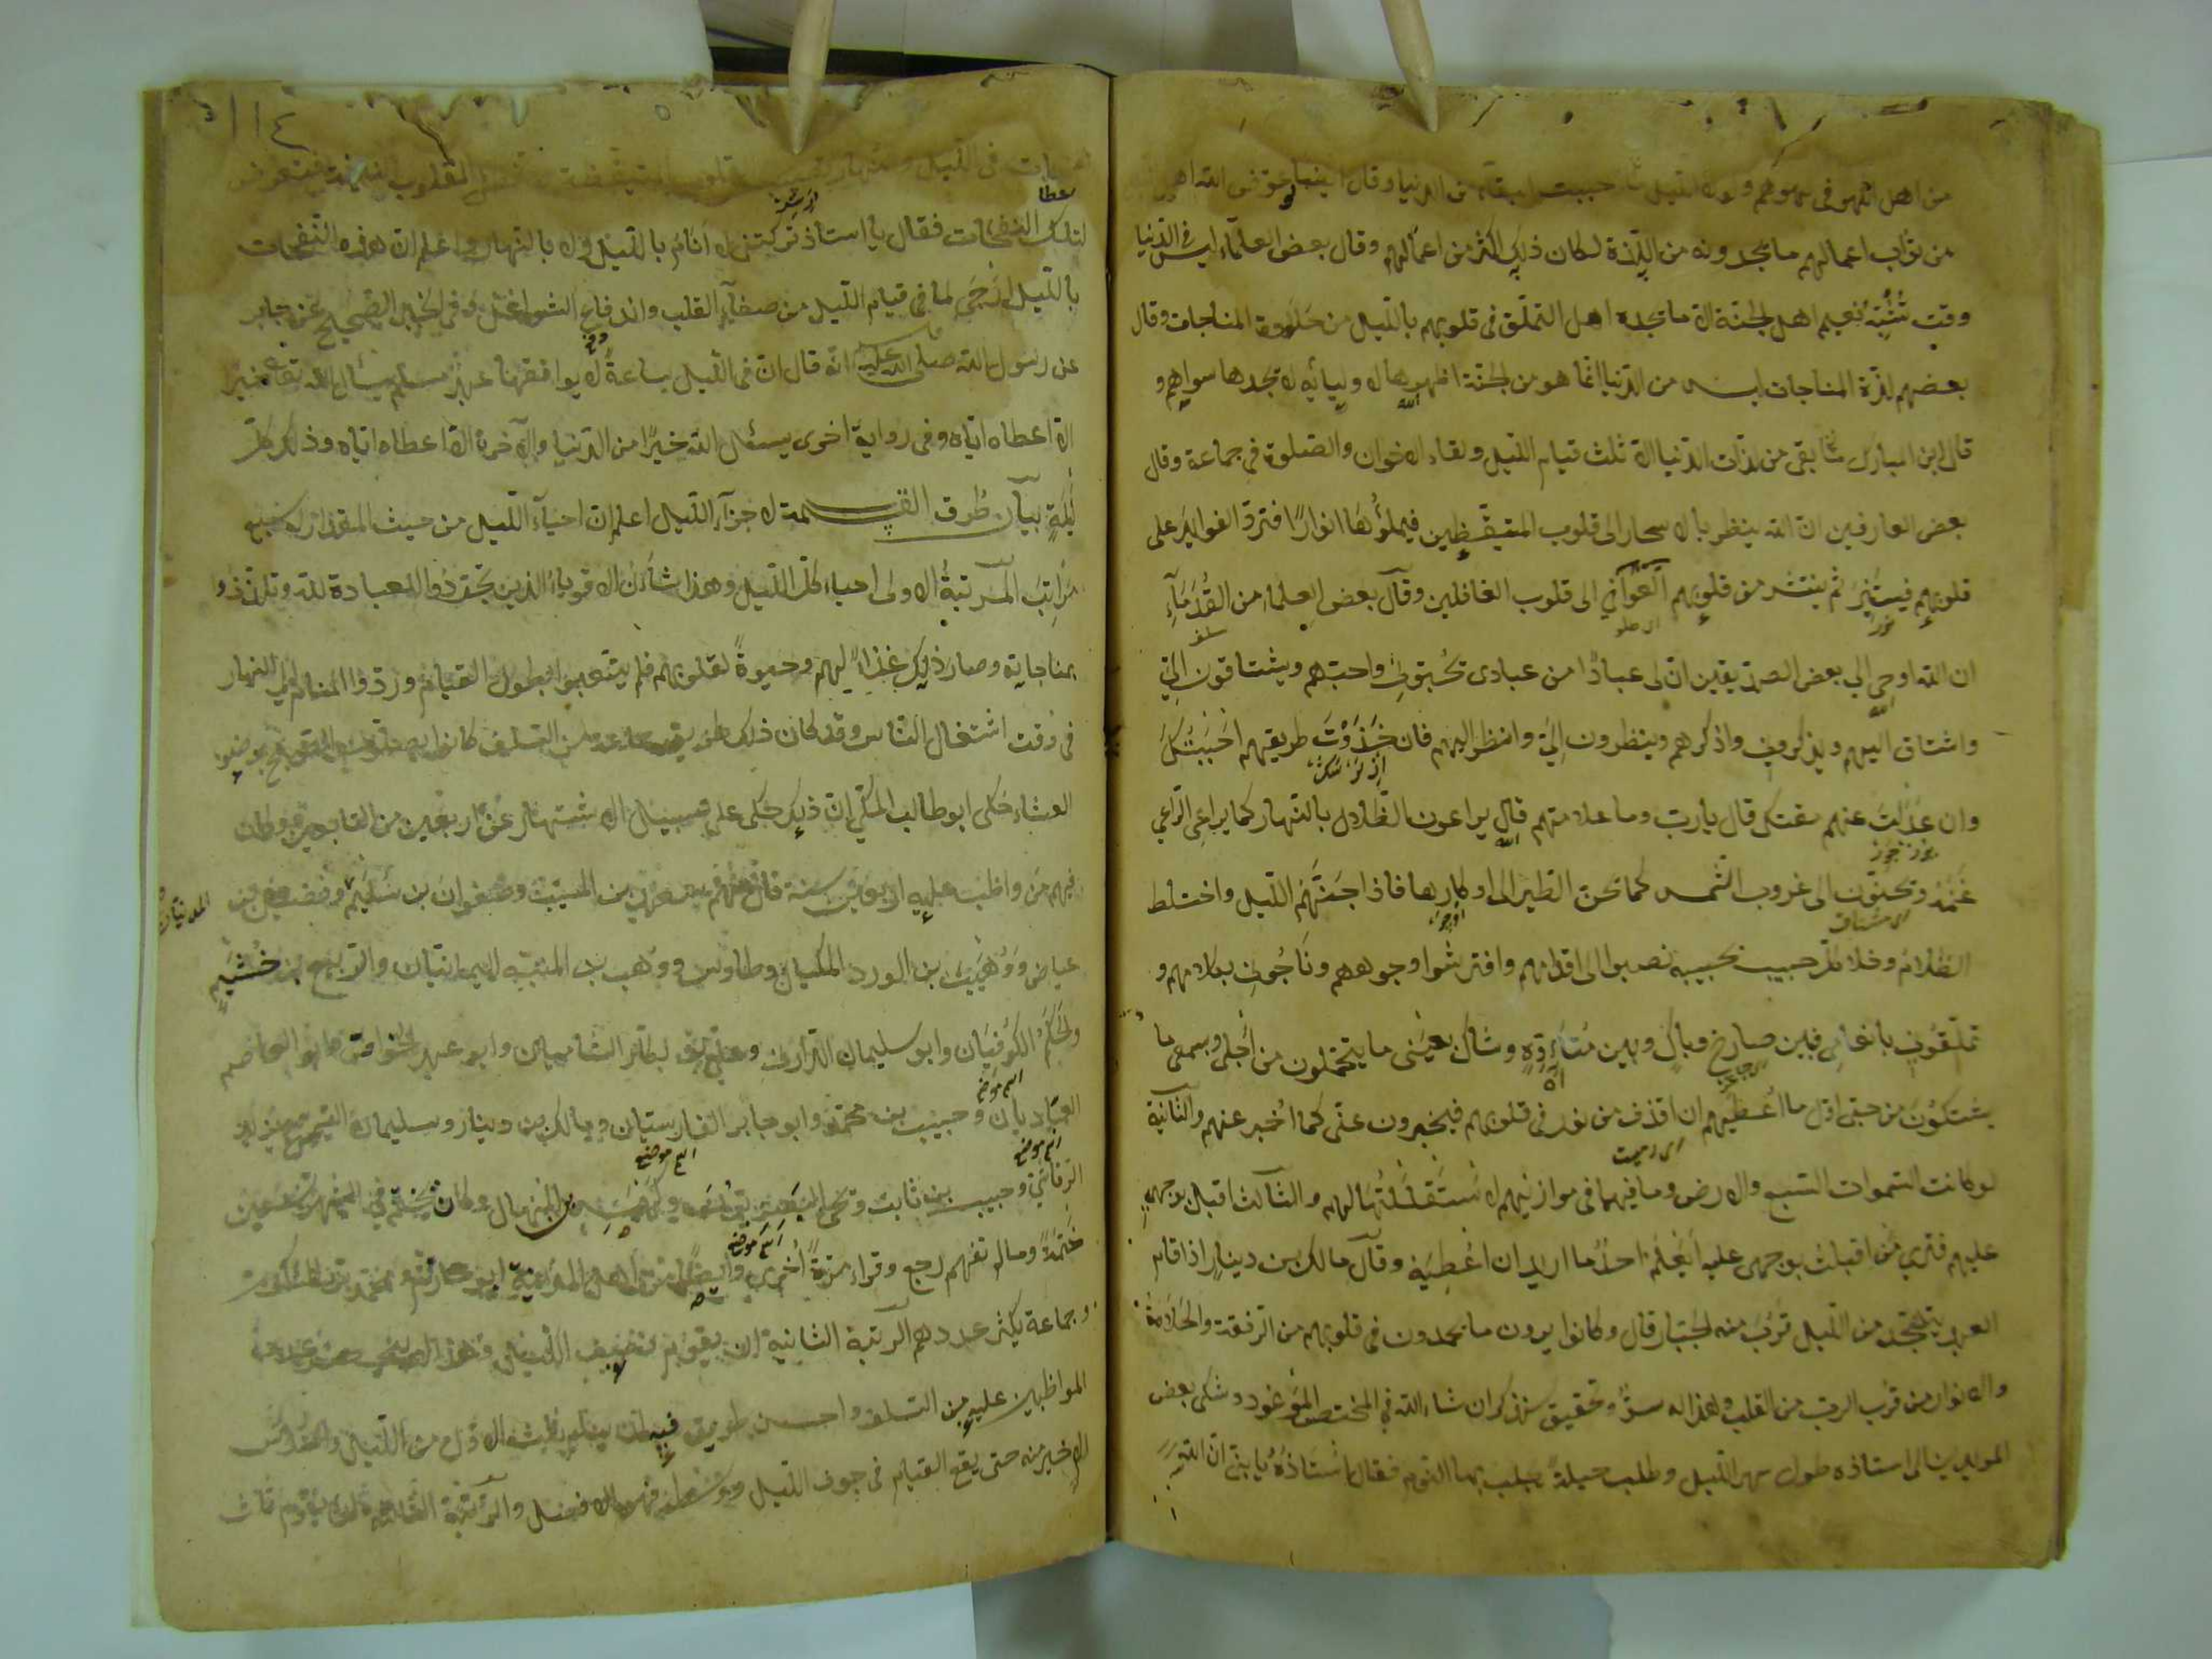 من اهل اللهو فى لهوهم ولولا الليل ما احببت البقاء فى الدنيا وقال ايضا لو عوض الله اهل
من ثواب اعمالهم ما يجدونه من اللذة لكان ذلك اكثر من اعمالهم وقال بعض العلماء ليس فى الدنيا
وقت يشبه نعيم اهل الجنة الا ما يجده اهل التملق فى قلوبهم بالليل من حلاوة المناجات وقال
بعضهم لذة المناجات ليست من الدنيا انما هو من الجنة اظهرها لاوليائه لا يجدها سواهم و
قال ابن المبارك ما بقى من لذات الدنيا الا ثلث قيام الليل ولقاء الاخوان والصلوة فى جماعة وقال
بعض العارفين ان الله ينظر بالاسحار الى قلوب المتيقظين فيملؤها انوارًا فترد الفوايد على
قلوبهم فيستنير ثم ينتشر من قلوبهم العوافى الى قلوب الغافلين وقال بعض العلماء من القدماء
ان الله اوحى الى بعض الصديقين ان لى عبادًا من عبادى يحبوننى واحبهم ويشتاقون الى
واشتاق اليهم ويذكرونى واذكرهم وينظرون الى وانظر اليهم فان حذوت طريقهم احببتك
وان عدلت عنهم مقتك قال يا رب وما علامتهم قال يراعون الظلال بالنهار كما يراعى الراعى
غنمه ويحنون الى غروب الشمس كما تحن الطير الى اوكارها فاذا جنهم الليل واختلط
الظلام وخلا كل حبيب بحبيبه نصبوا الى اقدامهم وافترشوا وجوههم وناجونى بكلامهم و
تملقونى بانعامى فبين صارخ وباك وبين متأوه وشاك بعينى ما يتحملون من اجلى وبسمعى ما
يشتكون من حبى اول ما اعطيهم ان اقذف من نورى فى قلوبهم فيخبرون عنى كما اخبر عنهم والثانية
لو كانت السموات السبع والارض وما فيهما فى موازينهم لاستقللتها لهم والثالث اقبل بوجهى
عليهم فترى من اقبلت بوجهى عليه ايعلم احد ما اريد ان اعطيه وقال مالك بن دينار اذا قام
العبد يتهجد من الليل قرب منه الجبار قال وكانوا يرون ما يجدون فى قلوبهم من الرقة والحلاوة
والانوار من قرب الرب من القلب ولهذا له سر وتحقيق سنذكر ان شاء الله فى المختص الموعود وشكى بعض
المريدين الى استاذه طول سهر الليل وطلب حيلة يجلب بها النوم فقال استاذه يا بنى ان لله
نفحات فى الليل والنهار تصيب القلوب المتيقظة وتخطى القلوب النائمة فتعرض
لتلك النفحات فقال يا استاذ تركتنى لا انام بالليل ولا بالنهار واعلم ان هذه النفحات
بالليل ارجى لما فى قيام الليل من صفاء القلب واندفاع الشواغل وفى الخبر الصحيح عن جابر
عن رسول الله صلى الله عليه انه قال ان فى الليل ساعة لا يوافقها عبد مسلم يسأل الله تعالى خيرا
الا اعطاه اياه وفى رواية اخرى يسئل الله خيرًا من الدنيا والآخرة الا اعطاه اياه وذلك كل
ليلة بيان طرق القسمة لاجزاء الليل اعلم ان احياء الليل من حيث المقدار له سبع
مراتب المرتبة الاولى احياء كل الليل وهذا شأن الاقوياء الذين تجردوا لعبادة الله وتلذذوا
بمناجاته وصار ذلك غذاء لهم وحيوة لقلوبهم فلم يتعبوا بطول القيام وردوا المنام الى النهار
فى وقت اشتغال الناس وقد كان ذلك طريق جماعة من السلف كانوا يصلون الصبح بوضوء
العشاء حكى ابو طالب المكى ان ذلك حكى على سبيل الاشتهار عن اربعين من التابعين وكان
فيهم من واظب عليه اربعين سنة قال منهم سعيد بن المسيب وصفوان بن سليم وفضيل بن المدنيان
عياض ووهيب بن الورد المكيان وطاوس ووهب بن المنبه اليمانيان والربيع بن خثيم
والحكم الكوفيان وابو سليمان الدارانى وعلى بن بكار الشاميان وابو عبد الخواص وابو عاصم
العباديان وحبيب بن محمد وابو جابر الفارسيان ومالك بن دينار وسليمان التيمى ويزيد
الرقاشى وحبيب بن ثابت ويحيى البكاء وكهمس بن المنهال وكان يختم فى الشهر تسعين
ختمة وما لم تفهم رجع وقراه مرة اخرى وايضًا من اهل المدينة ابو حازم ومحمد بن المنكدر
وجماعة يكثر عددهم المرتبة الثانية ان يقوم نصف الليل وهذا لا ينحصر عدد
المواظبين عليه من السلف واحسن طريق فيه ان ينام الثلث الاول من الليل والسدس
الاخير منه حتى يقع القيام فى جوف الليل ووسطه فهو الافضل والمرتبة الثالثة ان يقوم ثلث